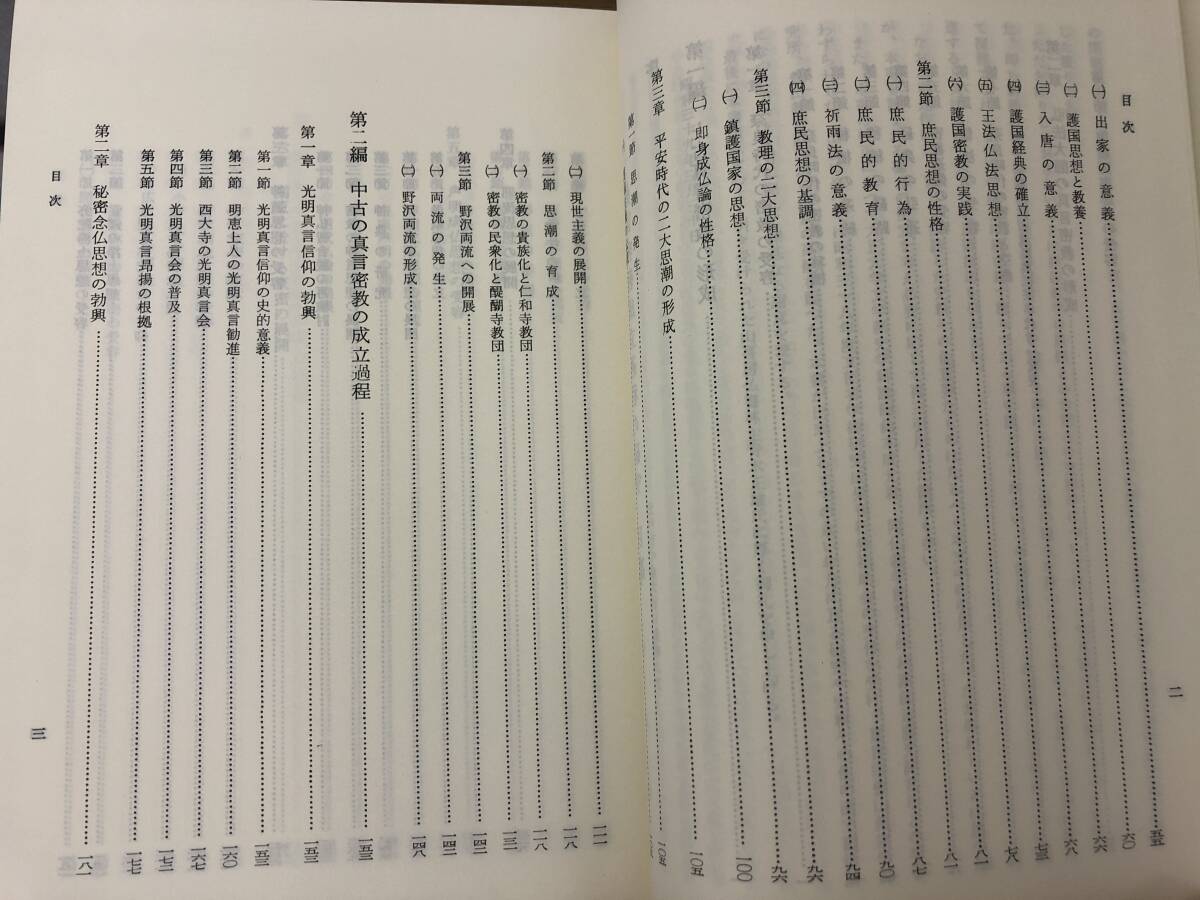 目次
㈠ 出家の意義……五五
㈡ 護国思想と教養……六〇
㈢ 入唐の意義……六六
㈣ 護国経典の確立……六八
㈤ 王法仏法思想……七三
㈥ 護国密教の実践……七八
第二節 庶民思想の性格……八一
㈠ 庶民的行為……八一
㈡ 庶民的教育……八七
㈢ 祈雨法の意義……九〇
㈣ 庶民思想の基調……九四
第三節 教理の二大思想……九六
㈠ 鎮護国家の思想……九六
㈡ 即身成仏論の性格……一〇〇
第三章 平安時代の二大思潮の形成……一〇五
第一節 思潮の発生……一〇五
二
㈡ 現世主義の展開……一一一
第二節 思潮の育成……一一八
㈠ 密教の貴族化と仁和寺教団……一一八
㈡ 密教の民衆化と醍醐寺教団……一三一
第三節 野沢両流への開展……一四二
㈠ 両流の発生……一四二
㈡ 野沢両流の形成……一四八
第二編 中古の真言密教の成立過程……一五三
第一章 光明真言信仰の勃興……一五三
第一節 光明真言信仰の史的意義……一五三
第二節 明恵上人の光明真言勧進……一六〇
第三節 西大寺の光明真言会……一六七
第四節 光明真言会の普及……一七三
第五節 光明真言昂揚の根拠……一七七
第二章 秘密念仏思想の勃興……一八一
目次
三